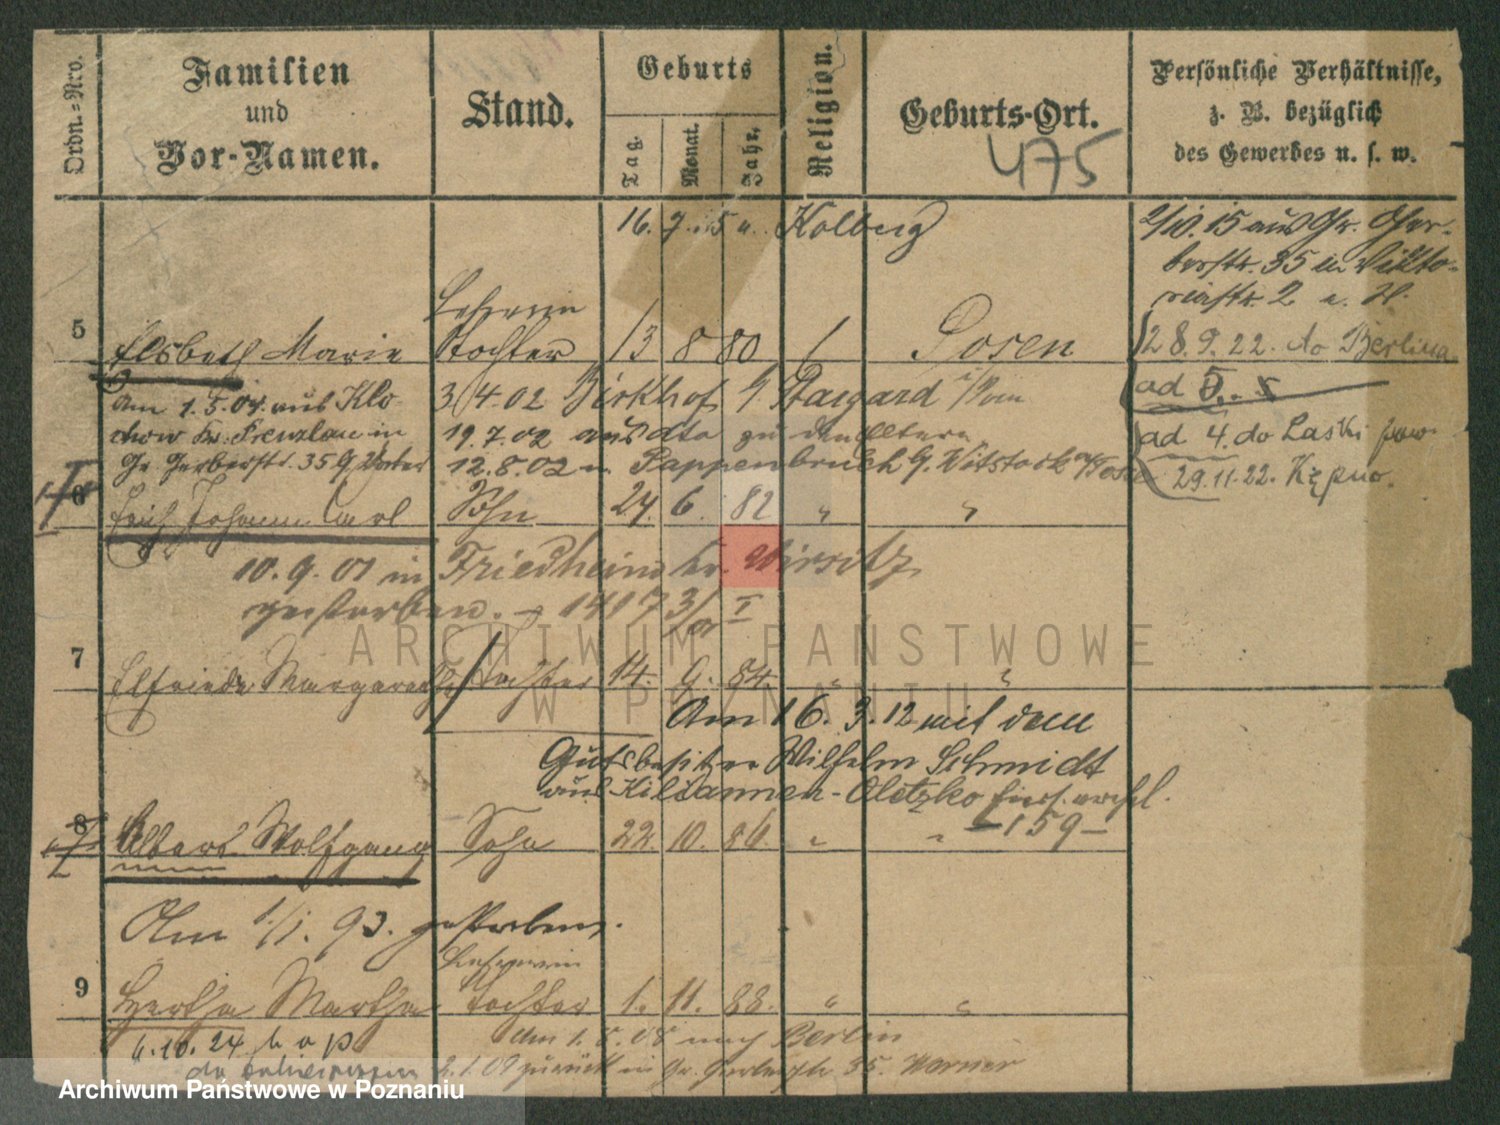 Ordn.-Nro.
Familien
und
Vor-Namen.
Stand.
Geburts
Tag.
Monat.
Jahr.
Religion.
Geburts-Ort.
475
Persönliche Verhältnisse,
z. B. bezüglich
des Gewerbes u. s. w.
16. 7. 15 Kolberg
2/10. 15 aus Gr. Ger-
berstr. 35 in Vikto-
riastr. 2
Lehrerin
5 Elsbeth Marie Tochter 13 8 80 Posen
28. 9. 22. do Berlina
ad 5.
am 1. 5. 04. aus Klo-
3/4. 02 Birkhof Stargard
chow Kr. Prenzlau in
19. 7. 02 aus dto zu den Eltern
ad 4. do Laski pow.
Gr. Gerberstr. 35
12. 8. 02 n. Pappenbruch Witstock
29. 11. 22. Kępno.
6 Erich Johann Carl Sohn 24. 6. 82 "
10. 9. 01 in Friedheim Kr. Wirsitz
gestorben. 1417 3/ I
ARCHIWUM PAŃSTWOWE
W POZNANIU
7 Elfriede Margarethe Tochter 14. 9. 84. "
Am 16. 3. 12 mit dem
Gutsbesitzer Wilhelm Schmidt
aus Kiliannen-Oletzko
-159-
8 Albert Wolfgang Sohn 22. 10. 86. "
Am 1/1. 93. gestorben.
Lehrerin
9 Hertha Martha Tochter 1. 11. 88. "
6. 10. 24
am 1. 8. 08 nach Berlin
2. 1. 09 zurück in Gr. Gerberstr. 35.
Archiwum Państwowe w Poznaniu